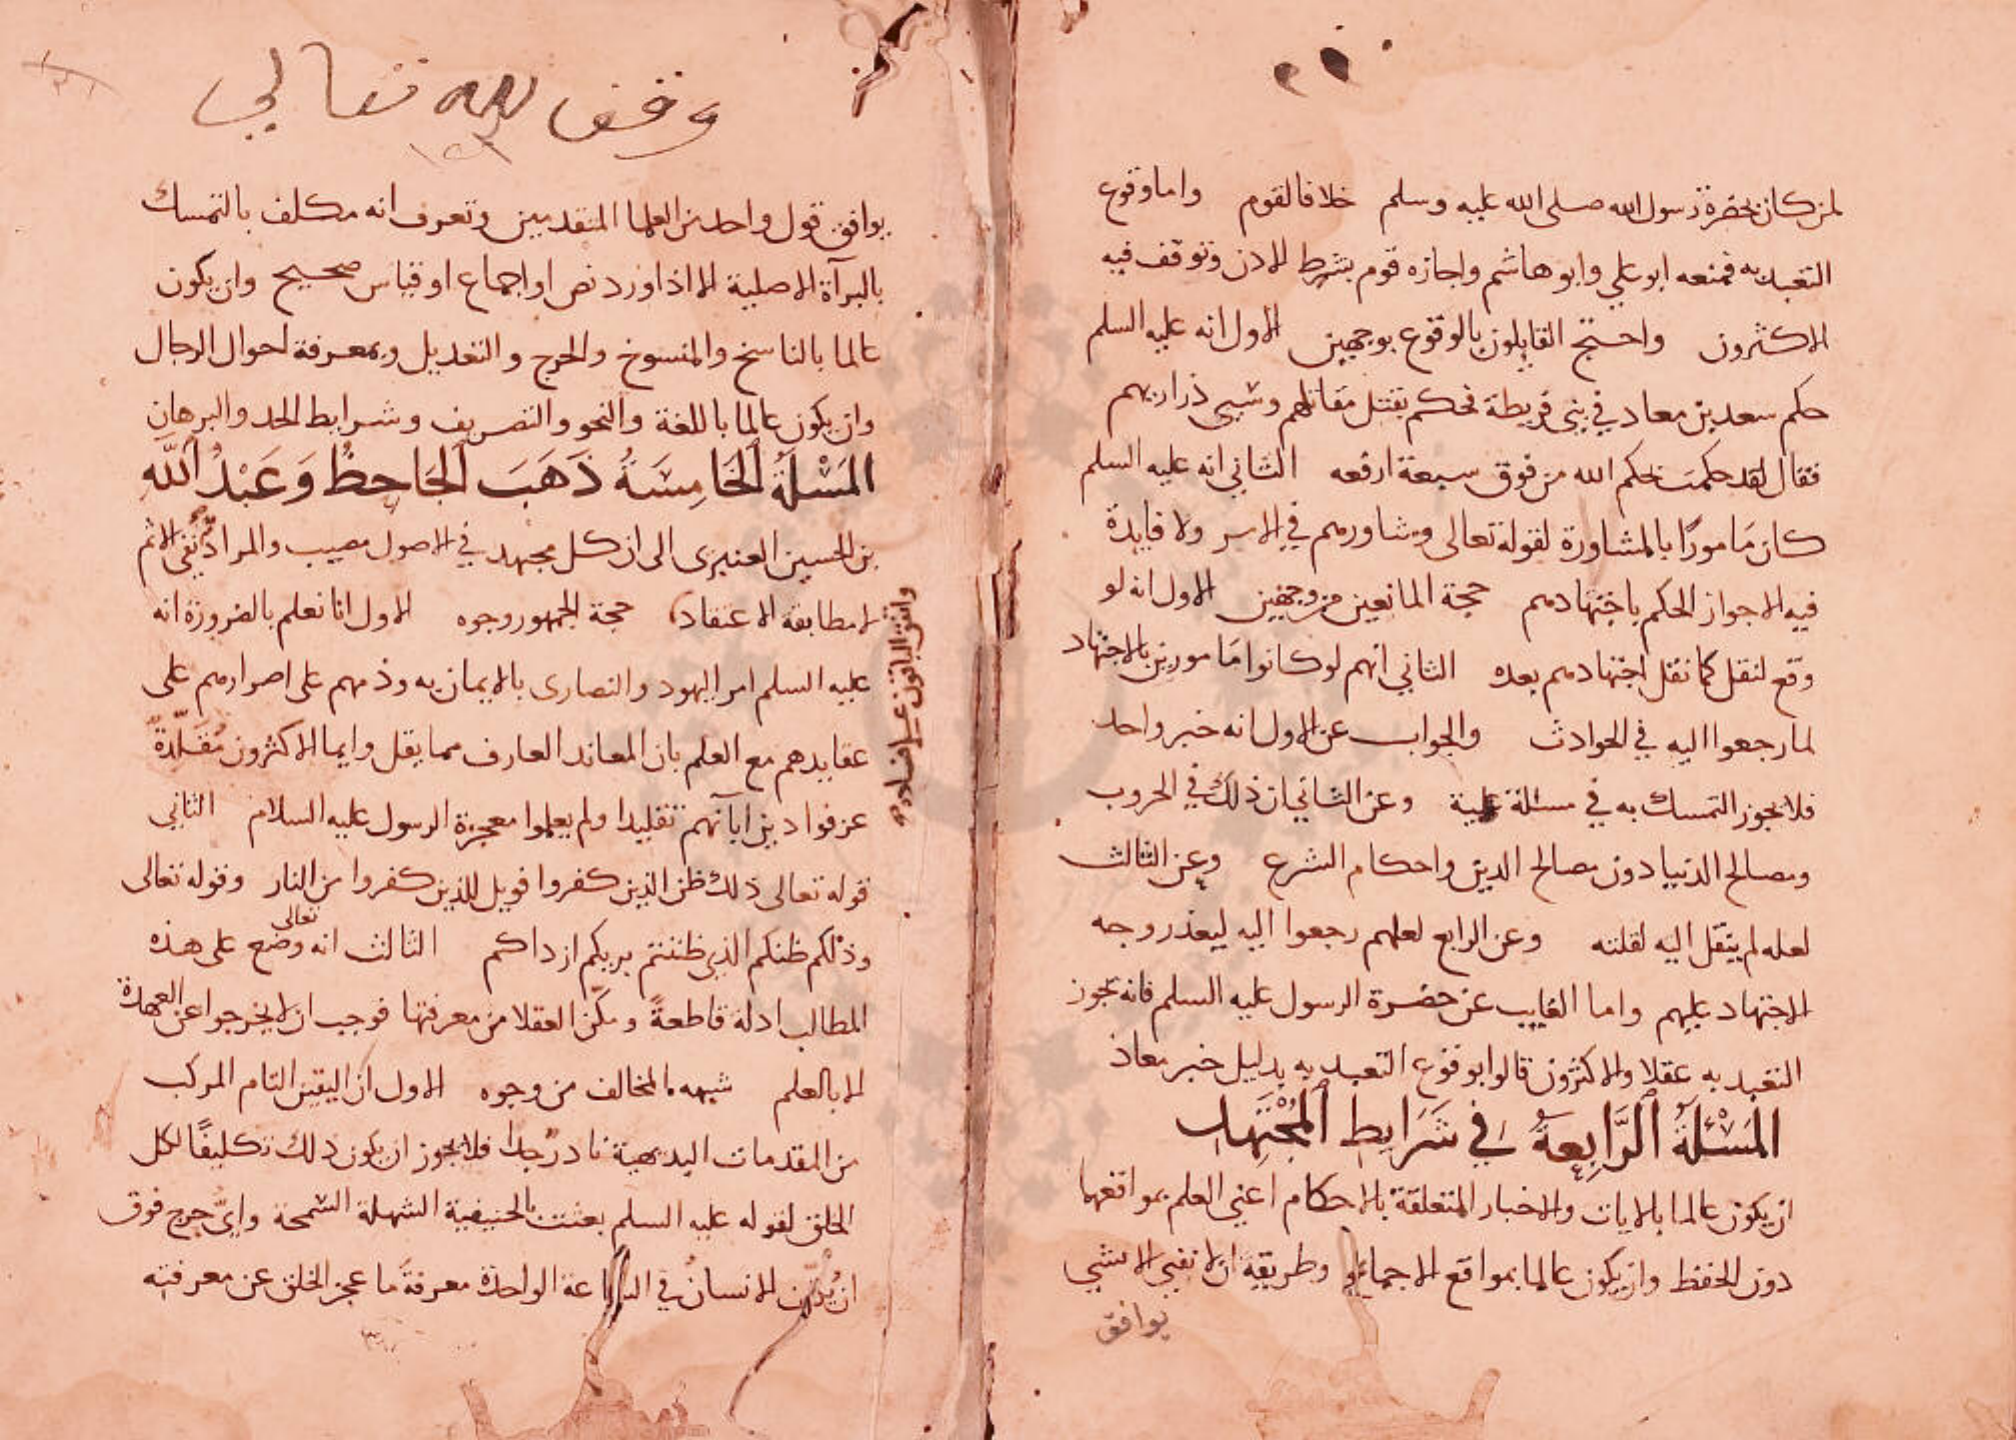 لمن كان بحضرة رسول الله صلى الله عليه وسلم خلافا لقوم واما وقوع
التعبد به فمنعه ابو علي وابو هاشم واجازه قوم بشرط الاذن وتوقف فيه
الاكثرون واحتج القايلون بالوقوع بوجهين الاول انه عليه السلم
حكم سعد بن معاد في بني قريظة فحكم بقتل مقاتلهم وسبي ذراريهم
فقال لقد حكمت بحكم الله من فوق سبعة ارقعه الثاني انه عليه السلم
كان مَامورًا بالمشاورة لقوله تعالى وشاورهم في الامر ولا فايدة
فيه الا جواز الحكم باجتهادهم حجة المانعين من وجهين الاول انه لو
وقع لنقل كما نقل اجتهادهم بعده الثاني انهم لو كانوا مَامورين بالاجتهاد
لما رجعوا اليه في الحوادث والجواب عن الاول انه خبر واحد
فلا يجوز التمسك به في مسئلة علمية وعن الثاني ان ذلك في الحروب
ومصالح الدنيا دون مصالح الدين واحكام الشرع وعن الثالث
لعله لم ينقل اليه لقلته وعن الرابع لعلهم رجعوا اليه ليعذر وجه
الاجتهاد عليهم واما الغايب عن حضرة الرسول عليه السلم فانه يجوز
التعبد به عقلا والاكثرون قالوا بوقوع التعبد به بدليل خبر معاذ
المَسْئلَةُ الرَّابِعةُ في شَرَايِط المُجْتَهِد
ان يكون عالما بالايات والاخبار المتعلقة بالاحكام اعني العلم بمواقعها
دون الحفظ وان يكون عالما بمواقع الاجماع وطريقة ان لا نفتي الا بشي
يوافق
وقف لله تعالى
يوافق قول واحد من العلما المتقدمين وتعرف انه مكلف بالتمسك
بالبرآة الاصلية الا اذا ورد نص او اجماع او قياس صحيح وان يكون
عالما بالناسخ والمنسوخ والجرح والتعديل وبمعرفة احوال الرجال
وان يكون عالما باللغة والنحو والتصريف وشرايط الحد والبرهان
المَسْئلَةُ الخَامِسَةُ ذَهَبَ الجَاحِظُ وَعَبْدُ اللَّه
بن الحسين العنبرى الى ان كل مجتهد في الاصول مصيب والمراد نفي الاثم
لا مطابقة الاعتقاد حجة الجمهور وجوه الاول انا نعلم بالضرورة انه
واتفق الباقون على فساده
عليه السلم امر اليهود والنصارى بالايمان به وذمهم على اصرارهم على
عقايدهم مع العلم بان المعاند العارف مما يقل وايما الاكثرون مُقَلّدةً
عرفوا دين ابآئهم تقليدا ولم يعلموا معجزة الرسول عليه السلام الثاني
قوله تعالى ذلك ظن الذين كفروا فويل للذين كفروا من النار وقوله تعالى
وذلكم ظنكم الذي ظننتم بربكم ارداكم الثالث انه تعالى وضع على هذه
المطالب ادلة قاطعةً ومكّن العقلا من معرفتها فوجب ان لا يخرجوا عن العهدة
الا بالعلم شبهه المخالف من وجوه الاول ان اليقين التام المركب
من المقدمات البديهية نادر جدا فلا يجوز ان يكون ذلك تكليفًا لكل
الخلق لقوله عليه السلم بعثت بالحنيفية السهلة السمحة وايّ حرج فوق
ان للانسان في الساعة الواحدة معرفة ما عجز الخلق عن معرفته